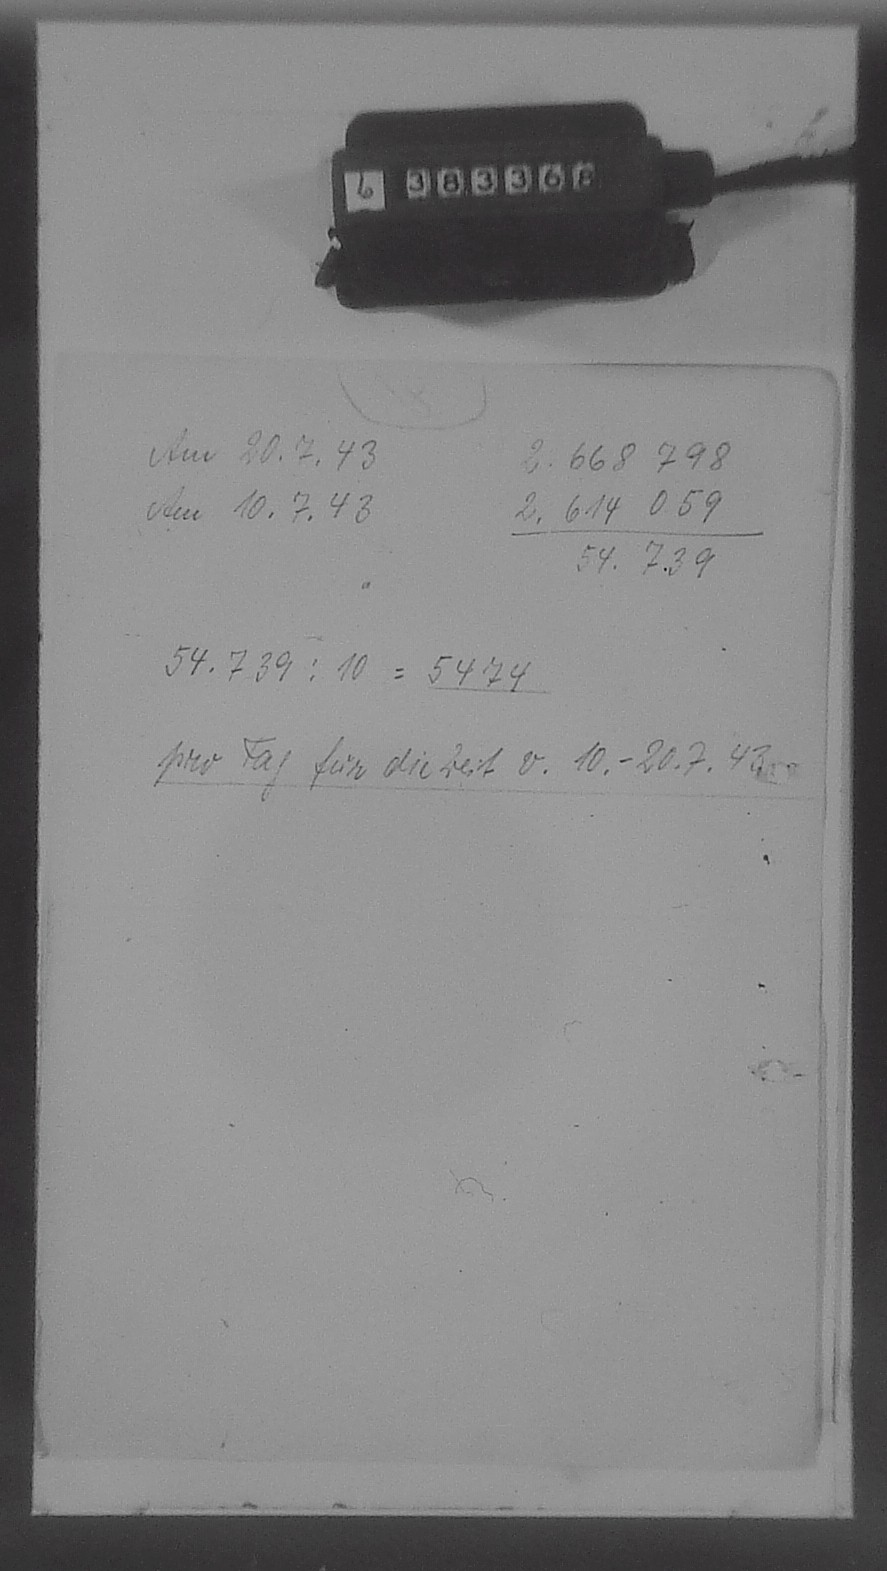 6 383368
Am 20.7.43 2.668 798
Am 10.7.43 2.614 059
54.739
54.739 : 10 = 5474
pro Tag für die Zeit v. 10.-20.7.43